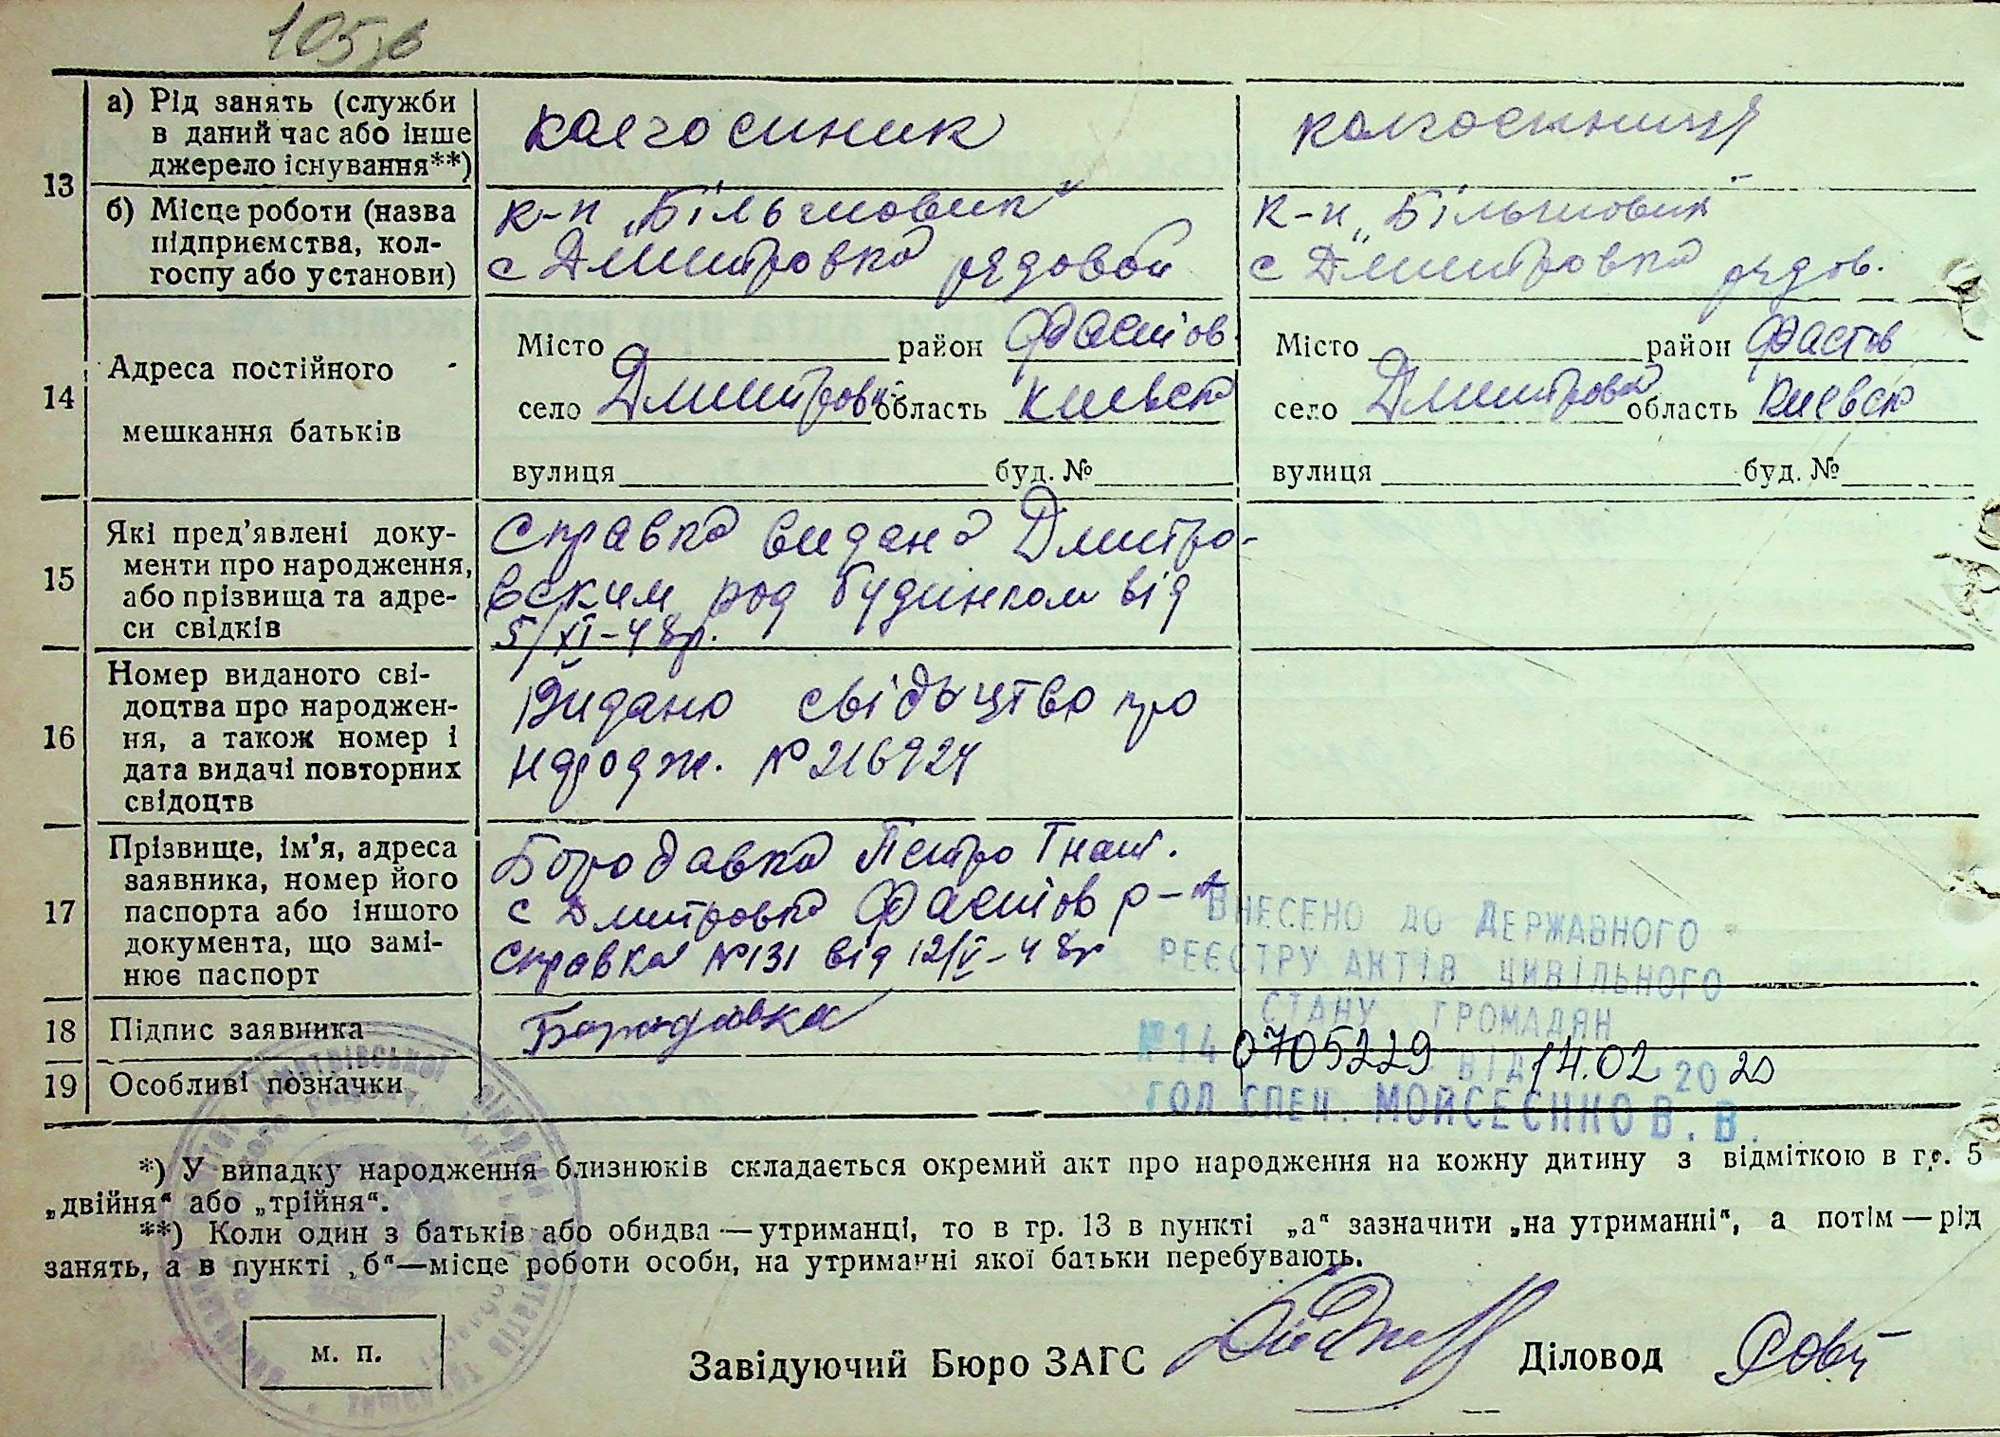 105зв
13
а) Рід занять (служби
в даний час або інше
джерело існування**)
колгоспник
колгоспниця
б) Місце роботи (назва
підприємства, кол-
госпу або установи)
к-п „Більшовик"
с Дмитровка рядовой
к-п „Більшовик"
с Дмитровка рядов.
14
Адреса постійного
мешкання батьків
Місто район Фастов
село Дмитровк область Киевск
вулиця буд. №
Місто район Фастов
село Дмитровка область Киевск
вулиця буд. №
15
Які пред'явлені доку-
менти про народження,
або прізвища та адре-
си свідків
Справка видана Дмитро-
вским род будинком від
5/XI-48р.
16
Номер виданого сві-
доцтва про народжен-
ня, а також номер і
дата видачі повторних
свідоцтв
Видано свідоцтво про
народж. №216924
17
Прізвище, ім'я, адреса
заявника, номер його
паспорта або іншого
документа, що замі-
нює паспорт
Бородавка Петро Гнат.
с Дмитровка Фастов р-н
справка №131 від 12/V-48р
ВНЕСЕНО ДО ДЕРЖАВНОГО
РЕЄСТРУ АКТІВ ЦИВІЛЬНОГО
СТАНУ ГРОМАДЯН
№14 0705229 ВІД 14.02 2020
ГОЛ СПЕЦ. МОЙСЕЄНКО В. В.
18
Підпис заявника
Бородавка
19
Особливі позначки
*) У випадку народження близнюків складається окремий акт про народження на кожну дитину з відміткою в гр. 5
„двійня" або „трійня".
**) Коли один з батьків або обидва—утриманці, то в гр. 13 в пункті „а" зазначити „на утриманні", а потім—рід
занять, а в пункті „б"—місце роботи особи, на утриманні якої батьки перебувають.
м. п.
Завідуючий Бюро ЗАГС
Діловод